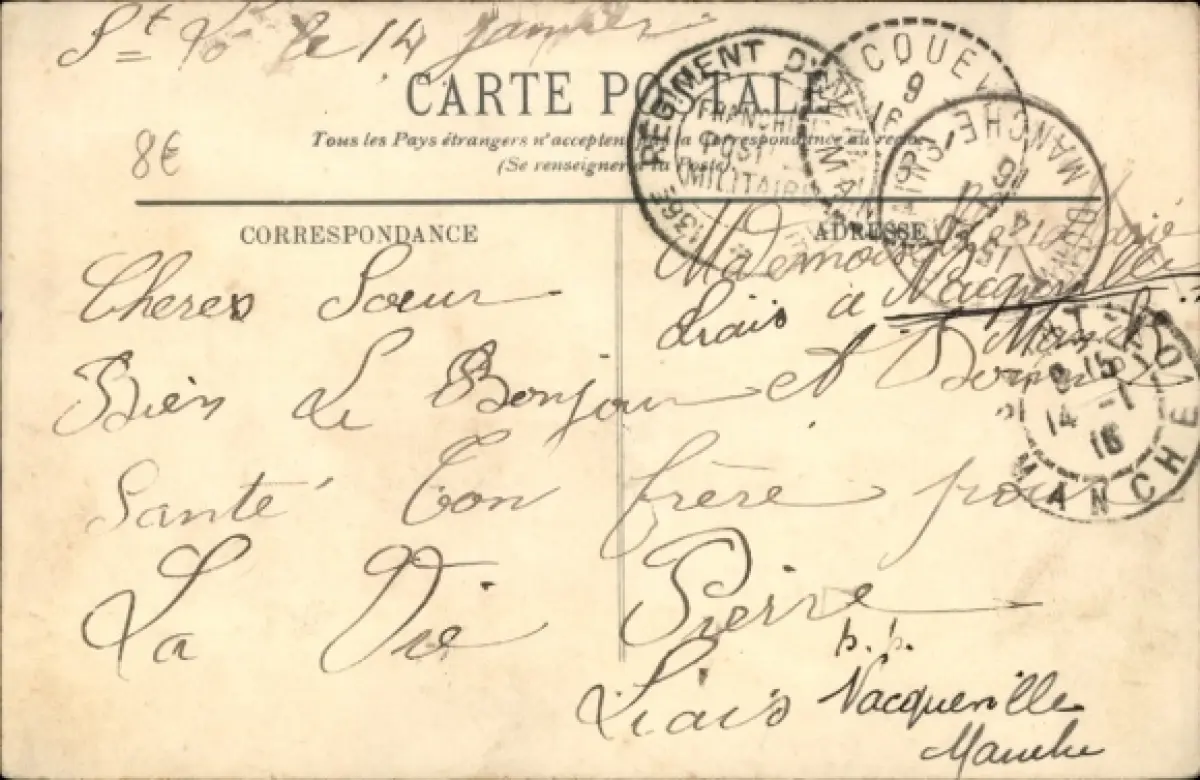 St Lô le 14 Janvier
CARTE POSTALE
Tous les Pays étrangers n'acceptent pas la Correspondance au recto
(Se renseigner à la Poste).
8€
136E REGIMENT D'
FRANCHISE
POSTALE
MILITAIRE
MANCHE
MANCHE
CORRESPONDANCE
ADRESSE
Mademoiselle Marie
Liais à Nacqueville
Manche
ST-LO
14 -1
16
MANCHE
Cheres Soeur
Bien Le Bonjour et Bonne
Santé Ton frère pour
La Vie Pierre
Liais
p.p.
Nacqueville
Manche